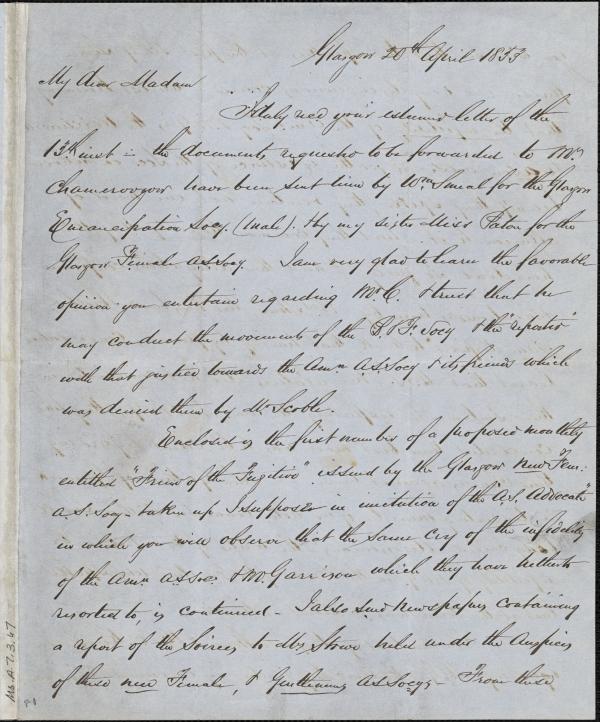 Glasgow 20th April 1853
My dear Madam
I duly recd your esteemed letter of the
13th inst & the documents requested to be forwarded to Mr
Chamerovzow have been sent him by Wm Smeal for the Glasgow
Emancipation Socy. (Male). & by my sister Miss Paton for the
Glasgow Female A.S. Socy. I am very glad to learn the favorable
opinion you entertain regarding Mr C. & trust that he
may conduct the movements of the B. & F. Socy & the "reporter"
with that justice towards the Amn A.S. Socy & its friends which
was denied them by Mr Scoble.
Enclosed is the first number of a proposed monthly
entitled "Friend of the Fugitive" issued by the Glasgow New Fem:
A.S. Socy - taken up I suppose in imitation of the "A.S. Advocate"
in which you will observe that the same cry of the infidelity
of the Amn A.S. Soc. & Mr. Garrison which they have hitherto
resorted to, is continued - I also send newspapers containing
a report of the Soirees to Mrs Stowe held under the Auspices
of these new Female, & Gentlemens A.S. Socys - From these
Ms. A. 7. 3. 47